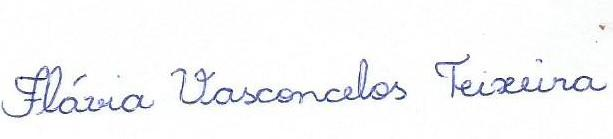 Flávia Vasconcelos Teixeira